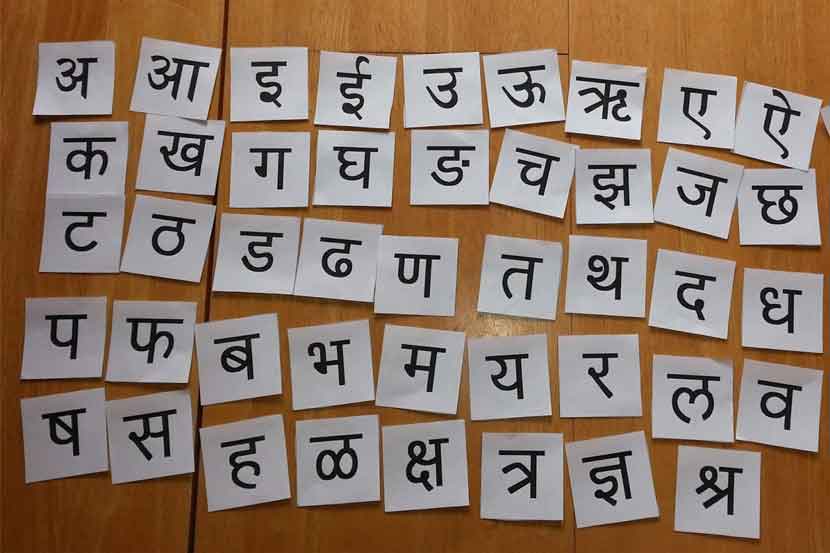 अ आ इ ई उ ऊ ऋ ए ऐ
क ख ग घ ङ च झ ज छ
ट ठ ड ढ ण त थ द ध
प फ ब भ म य र ल व
ष स ह ळ क्ष त्र ज्ञ श्र